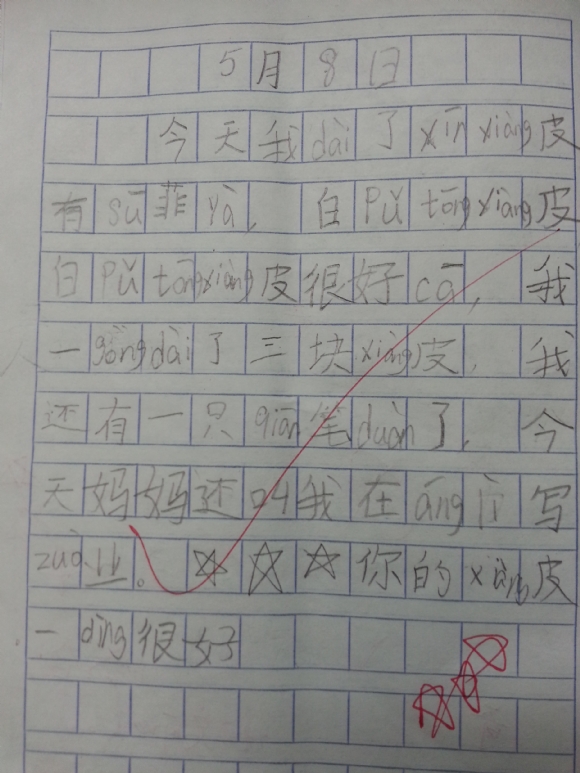 5月8日
今天我dài了xīn xiàng皮
有sū菲yà，白pǔ tōng xiàng皮
白pǔ tōng xiàng皮很好cā，我
一gòng dài了三块xiàng皮，我
还有一只qiān笔duàn了，今
天妈妈还叫我在āng lǐ写
zuò业。☆☆☆你的xiàng皮
一dìng很好